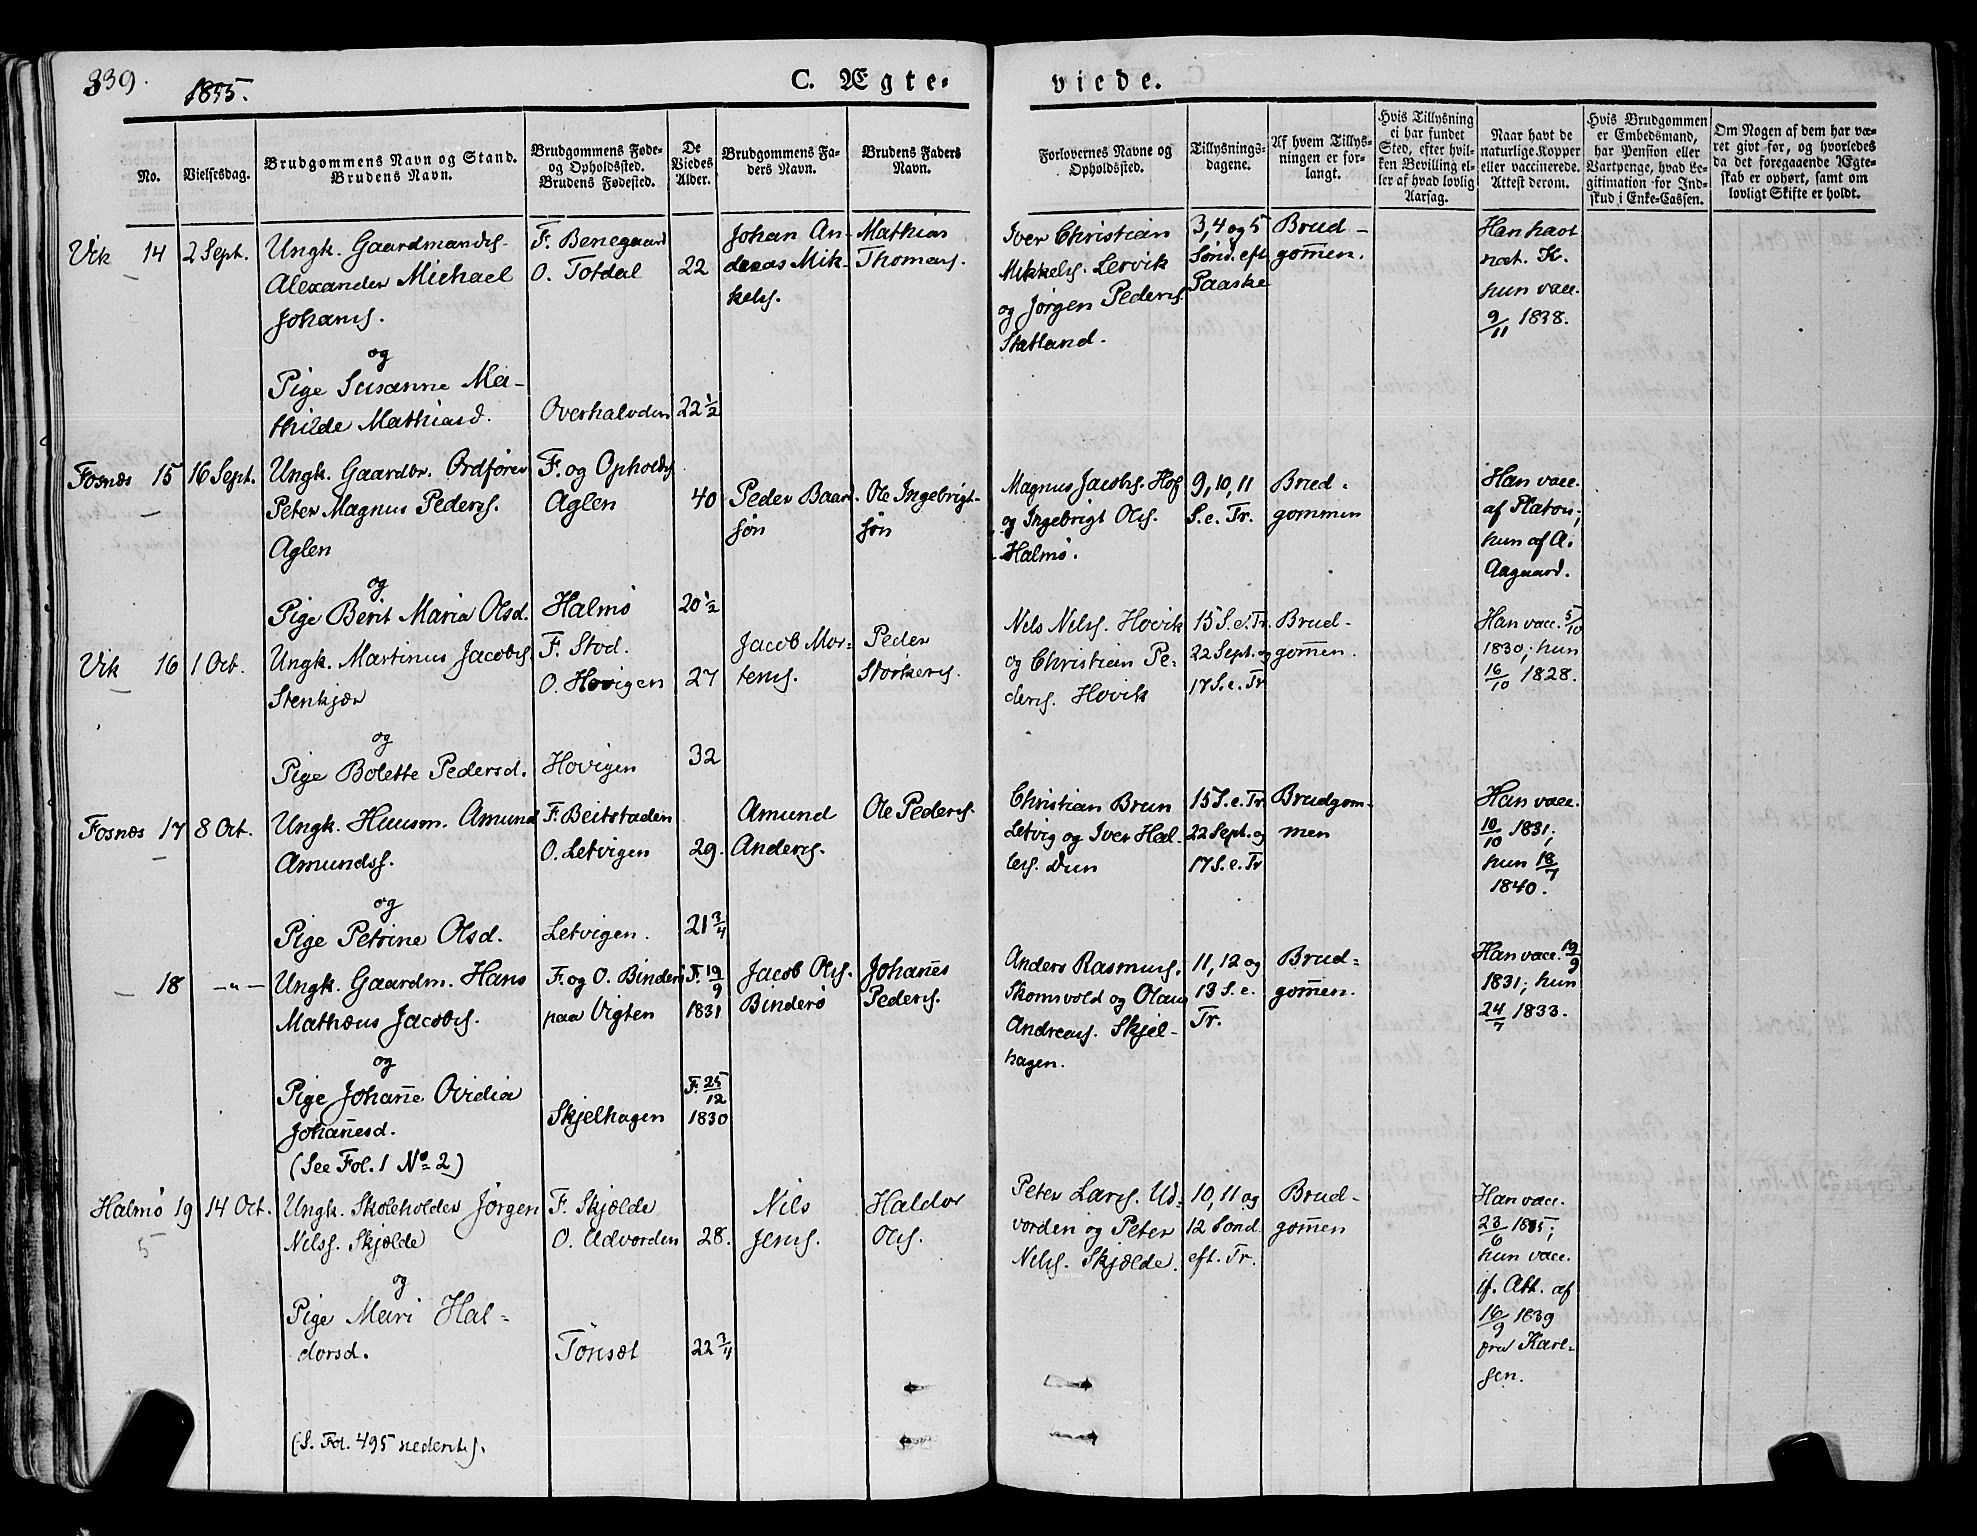 339.
1855.
C. Ægte-
viede.
No.
Vielsesdag.
Brudgommens Navn og Stand.
Brudens Navn.
Brudgommens Føde-
og Opholdssted.
Brudens Fødested.
De
Viedes
Alder.
Brudgommens Fa-
ders Navn.
Brudens Faders
Navn.
Forlovernes Navne og
Opholdsted.
Tillysnings-
dagene.
Af hvem Tillys-
ningen er for-
langt.
Hvis Tillysning
ei har fundet
Sted, efter hvil-
ken Bevilling el-
ler af hvad lovlig
Aarsag.
Naar havt de
naturlige Kopper
eller vaccinerede.
Attest derom.
Hvis Brudgommen
er Embedsmand,
har Pension eller
Vartpenge, hvad Le-
gitimation for Ind-
skud i Enke-Cassen.
Om Nogen af dem har væ-
ret givt før, og hvorledes
da det foregaaende Ægte-
skab er ophørt, samt om
lovligt Skifte er holdt.
Vik 14 2 Sept.
Ungk. Gaardmands-
Alexander Michael
Johans.
og
Pige Susanne Ma-
thilde Mathiasd.
F. Benegaard
O. Totdal
Overhalvden
22
22 1/2
Johan An-
dreas Mik-
kels.
Mathias
Thomass.
Iver Christian
Mikkels. Lervik
og Jørgen Peders.
Statland.
3, 4 og 5
Sønd. eft
Paaske
Brud-
gom̄en.
Han havt
nat. K.
hun vacc.
9/11 1838.
Fosnæs 15 16 Sept.
Ungk. Gaardbr. Ordfører
Peter Magnus Peders.
Aglen
og
Pige Berit Maria Olsd.
F. og Opholds
Aglen
Halmø
40
20 1/2
Peder Baard
søn
Ole Ingebrigt-
søn
Magnus Jacobs. Hof
og Ingebrigt Ols.
Halmø.
9, 10, 11
S. e. Tr.
Brud-
gommen
Han vacc.
af Platou;
hun af A.
Aagaard.
Vik 16 1 Oct.
Ungk. Martinus Jacobs.
Stenkjær
og
Pige Bolette Pedersd.
F. Stod.
O. Hovigen
Hovigen
27
32
Jacob Mor-
tens.
Peder
Storkers.
Nels Nels. Hovik
og Christian Pe-
ders. Hovik
15 S. e. Tr.
22 Sept. og
17 S. e. Tr
Brud-
gom̄en.
Han vacc. 5/10
1830; hun
16/10 1828.
Fosnæs 17 8 Oct.
Ungk. Huusm. Amund
Amundss.
og
Pige Petrine Olsd.
F. Beitstaden
O. Letvigen
Letvigen.
29.
21 3/4
Amund
Anders.
Ole Peders.
Christian Brun
Letvig og Iver Hal-
les. Dun
15 S. e. Tr.
22 Sept. og
17 S. e. Tr
Brudgom-
men
Han vacc.
10/10 1831;
hun 18/7
1840.
18 -"-
Ungk. Gaardm. Hans
Mathæus Jacobs.
og
Pige Johan̄e Ovidia
Johan̄esd.
(See Fol. 1 No 2)
F. og O. Binderø
paa Vigten
Skjelhagen
F. 19/9
1831
F. 25/12
1830
Jacob Ols.
Binderø
Johan̄es
Peders.
Anders Rasmus.
Skomsvold og Olaus
Andreas. Skjel-
hagen.
11, 12 og
13 S. e.
Tr.
Brud-
gom̄en.
Han vacc. 19/9
1831; hun
24/7 1833.
Halmø 19 14 Oct.
5
Ungk. Skoleholder Jørgen
Nilss. Skjælde
og
Pige Mari Hal-
dorsd.
(S. Fol. 495 nederst.
F. Skjælde
O. Udvorden
Tønsæt
28.
22 3/4
Nils
Jens.
Haldor
Ols.
Peter Lars. Ud-
vorden og Peter
Nels. Skjælde.
10, 11 og
12 Sønd.
eft. Tr.
Brud-
gom̄en
Han vacc.
23/6 1835;
hun vacc.
if. Att. af
16/9 1839
fra Karl-
sen.